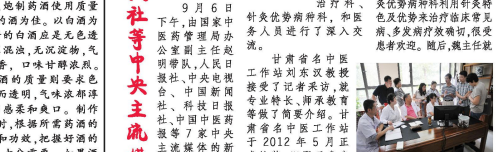 炮制药使用质量
的酒为佳。以白酒为
的白酒应是无色透
混浊,无沉淀物,气
香,口味甘醇浓烈。
酒的质量则要求色
而透明,气味浓郁淳
感柔和爽口。制作
时,根据所需药酒的
和功效,把握好酒的
社等中央主流
9月6日
下午,由国家中
医药管理局办
公室副主任赵
明带队,人民日
报社、中央电视
台、中国新闻
社、科技日报
社、中国中医药
报等7家中央
主流媒体的新
治疗科、
针灸优势病种科,和医
务人员进行了深入交
流。
甘肃省名中医
工作站刘东汉教授
接受了记者采访,就
专业特长、师承教育
等做了简要介绍。甘
肃省名中医工作站
于2012年5月正
灸优势病种科利用针灸特
色及优势来治疗临床常见
病、多发病疗效确切,很受
患者欢迎。随后,魏主任就